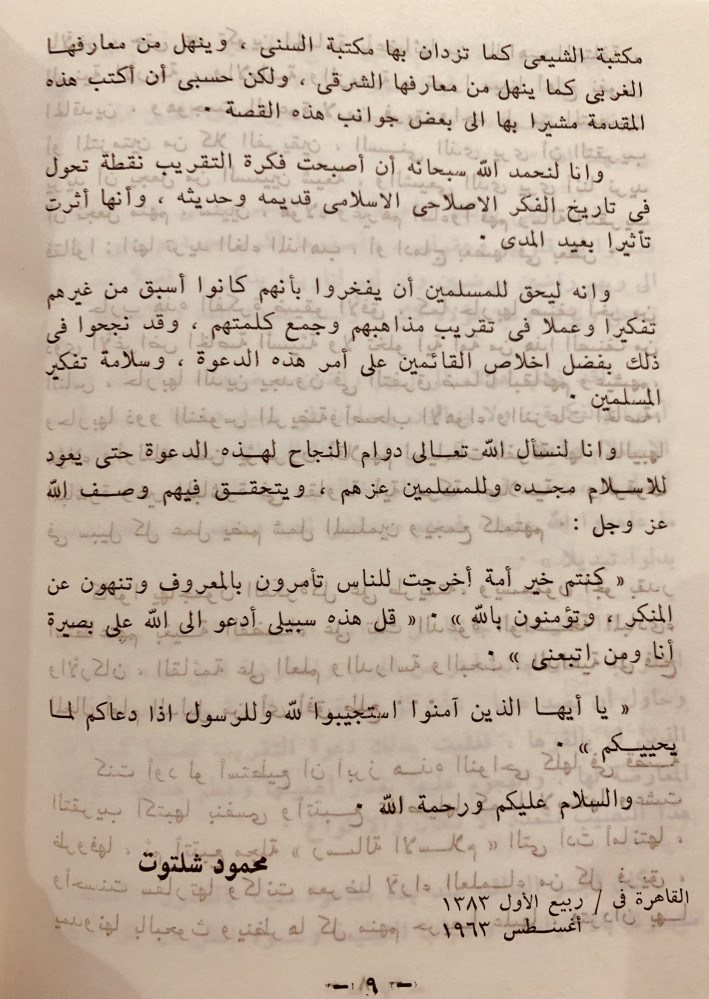 مكتبة الشيعى كما تزدان بها مكتبة السنى ، وينهل من معارفهـا
الغربى كما ينهل من معارفها الشرقى ، ولكن حسبى أن أكتب هذه
المقدمة مشيرا بها الى بعض جوانب هذه القصة .
وانا لنحمد الله سبحانه أن أصبحت فكرة التقريب نقطة تحول
فى تاريخ الفكر الاصلاحى الاسلامى قديمه وحديثه ، وأنها أثرت
تأثيرا بعيد المدى .
وانه ليحق للمسلمين أن يفخروا بأنهم كانوا أسبق من غيرهم
تفكيرا وعملا فى تقريب مذاهبهم وجمع كلمتهم ، وقد نجحوا فى
ذلك بفضل اخلاص القائمين على أمر هذه الدعوة ، وسلامة تفكير
المسلمين .
وانا لنسأل الله تعـالى دوام النجاح لهـذه الدعوة حتى يعود
للاسـلام مجـده وللمسلمين عزهم ، ويتحقـق فيهم وصـف الله
عز وجل :
« كنتم خير أمة أخرجت للناس تأمرون بالمعروف وتنهون عن
المنكر ، وتؤمنون بالله » . « قل هذه سبيلى أدعو الى الله على بصيرة
أنا ومن اتبعنى » .
« يا أيهـا الذين آمنوا استجيبوا لله وللرسول اذا دعاكم لما
يحييـكم » .
والسلام عليكم ورحمة الله .
محمود شلتوت
القاهرة فى / ربيع الأول ١٣٨٣
أغسـطس ١٩٦٣
— ٩ —